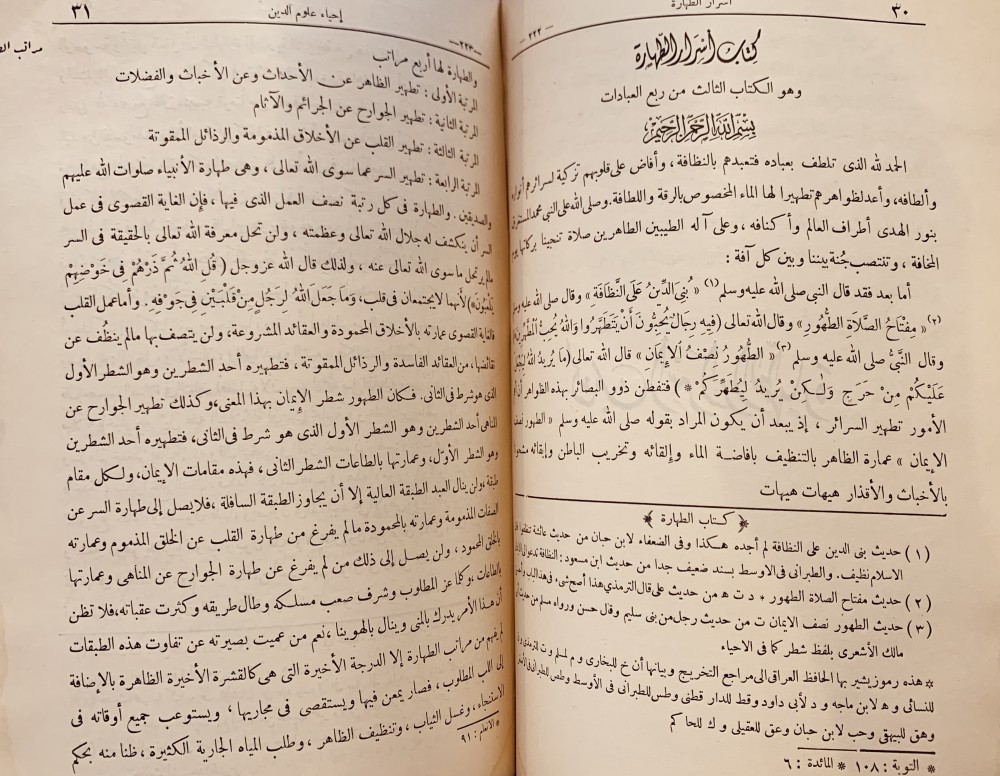 ٣٠
أسرار الطهارة
— ٢٢٢ —
كتاب أسرار الطهارة
وهو الكتاب الثالث من ربع العبادات
بسم الله الرحمن الرحيم
الحمد لله الذى تلطف بعباده فتعبدهم بالنظافة ، وأفاض على قلوبهم تزكية لسرائرهم أنواره
وألطافه، وأعد لظواهرهم تطهيرا لها الماء المخصوص بالرقة واللطافة. وصلى الله على النبى محمد المستغرق
بنور الهدى أطراف العالم وأكنافه ، وعلى آله الطيبين الطاهرين صلاة تنجينا بركاتها يوم
المخافة ، وتنتصب جُنة بيننا وبين كل آفة :
أما بعد فقد قال النبى صلى الله عليه وسلم (١) « بُنِىَ الدِّينُ عَلَى النَّظَافَةِ » وقال صلى الله عليه وسلم
(٢) « مِفْتَاحُ الصَّلَاةِ الطُّهُورُ » وقال الله تعالى ( فِيهِ رِجَالٌ يُحِبُّونَ أَنْ يَتَطَهَّرُوا وَاللهُ يُحِبُّ الْمُطَّهِّرِينَ
وقال النَّبىُّ صلى الله عليه وسلم (٣) « الطُّهُورُ نِصْفُ الْإِيمَانِ » قال الله تعالى ( مَا يُرِيدُ اللهُ لِيَجْعَلَ
عَلَيْكُمْ مِنْ حَرَجٍ وَلَـكِنْ يُرِيدُ لِيُطَهِّرَكُمْ * ) فتفطن ذوو البصائر بهذه الظواهر أن أهم
الأمور تطهير السرائر ، إذ يبعد أن يكون المراد بقوله صلى الله عليه وسلم « الطهور نصف
الإيمان » عمارة الظاهر بالتنظيف بافاضة الماء وإلقائه وتخريب الباطن وإبقائه مشحونا
بالأخباث والأقذار هيهات هيهات
﴿ كتاب الطهارة ﴾
( ١ ) حديث بنى الدين على النظافة لم أجده هكذا وفى الضعفاء لابن حبان من حديث عائشة تنظفوا فان
الاسلام نظيف. والطبرانى فى الاوسط بسند ضعيف جدا من حديث ابن مسعود : النظافة تدعو الى الايمان
( ٢ ) حديث مفتاح الصلاة الطهور * د ت ه من حديث على قال الترمذى هذا أصح شىء فى هذا الباب وأحسن
( ٣ ) حديث الطهور نصف الايمان ت من حديث رجل من بنى سليم وقال حسن ورواه مسلم من حديث أبى
مالك الأشعرى بلفظ شطر كما فى الاحياء
* هذه رموز يشير بها الحافظ العراقى الى مراجع التخريج وبيانها أن خ للبخارى و م لمسلم و ت للترمذى و ن
للنسائى و ه لابن ماجه و د لأبى داود وقط للدار قطنى وطس للطبرانى فى الأوسط وطص للطبرانى فى
وهق للبيهقى وحب لابن حبان وعق للعقيلى و ك للحاكم
* التوبة : ١٠٨ * المائدة : ٦
إحياء علوم الدين
٣١
— ٢٢٣ —
مراتب
والطهارة لها أربع مراتب
المرتبة الأولى : تطهير الظاهر عن الأحداث وعن الأخباث والفضلات
المرتبة الثانية : تطهير الجوارح عن الجرائم والآثام
المرتبة الثالثة : تطهير القلب عن الأخلاق المذمومة والرذائل الممقوتة
المرتبة الرابعة : تطهير السر عما سوى الله تعالى ، وهى طهارة الأنبياء صلوات الله عليهم
والصديقين . والطهارة فى كل رتبة نصف العمل الذى فيها ، فإن الغاية القصوى فى عمل
السر أن ينكشف له جلال الله تعالى وعظمته ، ولن تحل معرفة الله تعالى بالحقيقة فى السر
مالم يرتحل ما سوى الله تعالى عنه ، ولذلك قال الله عز وجل ( قُلِ اللهُ ثُمَّ ذَرْهُمْ فِى خَوْضِهِمْ
يَلْعَبُونَ* ) لأنهما لا يجتمعان فى قلب، وَمَا جَعَلَ اللهُ لِرَجُلٍ مِنْ قَلْبَيْنِ فِى جَوْفِهِ . وأما عمل القلب
فالغاية القصوى عمارته بالأخلاق المحمودة والعقائد المشروعة، ولن يتصف بها مالم ينظُف عن
نقائضها، من العقائد الفاسدة والرذائل الممقوتة ، فتطهيره أحد الشطرين وهو الشطر الأول
الذى هو شرط فى الثانى. فكان الطهور شطر الإيمان بهذا المعنى، وكذلك تطهير الجوارح عن
المناهى أحد الشطرين وهو الشطر الأول الذى هو شرط فى الثانى، فتطهيره أحد الشطرين
وهو الشطر الأوّل، وعمارتها بالطاعات الشطر الثانى ، فهذه مقامات الإيمان، ولكل مقام
طبقة، ولن ينال العبد الطبقة العالية إلا أن يجاوز الطبقة السافلة ،فلا يصل إلى طهارة السر عن
الصفات المذمومة وعمارته بالمحمودة مالم يفرغ من طهارة القلب عن الخلق المذموم وعمارته
بالخلق المحمود ، ولن يصل إلى ذلك من لم يفرغ عن طهارة الجوارح عن المناهى وعمارتها
بالطاعات ، وكلما عز المطلوب وشرف صعب مسلكه وطال طريقه وكثرت عقباته،فلا تظن
أن هذا الأمر يدرك بالمنى وينال بالهوينا ، نعم من عميت بصيرته عن تفاوت هذه الطبقات
لم يفهم من مراتب الطهارة إلا الدرجة الأخيرة التى هى كالقشرة الأخيرة الظاهرة بالإضافة
إلى اللب المطلوب ، فصار يمعن فيها ويستقصى فى مجاريها ، ويستوعب جميع أوقاته فى
الاستنجاء، وغسل الثياب ، وتنظيف الظاهر ، وطلب المياه الجارية الكثيرة ، ظنا منه بحكم
* الانعام : ٩١